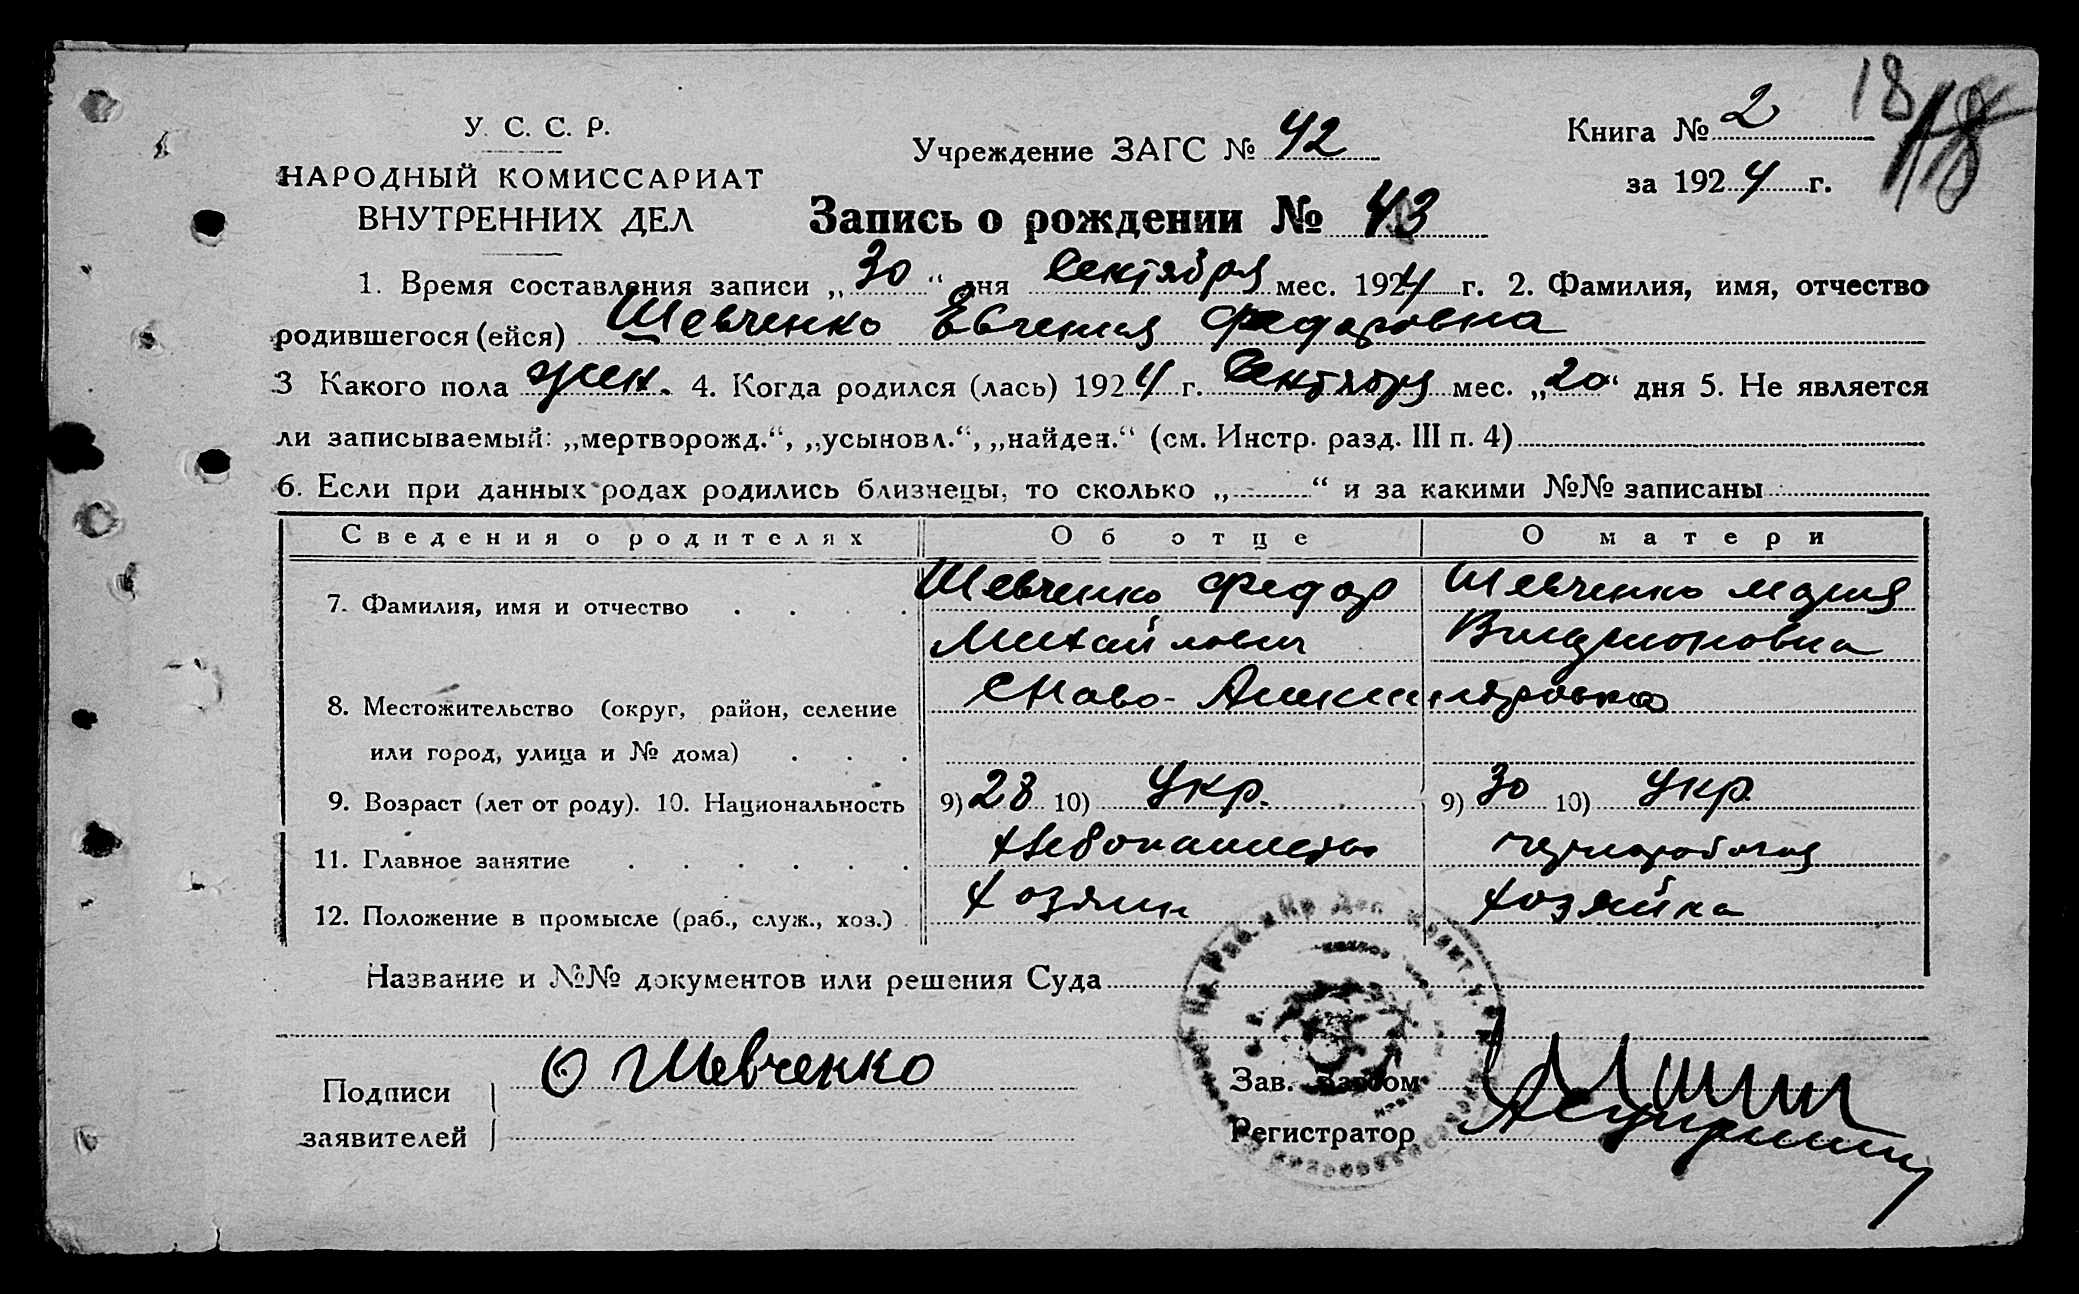 18 18
У. С. С. Р.
НАРОДНЫЙ КОМИССАРИАТ
ВНУТРЕННИХ ДЕЛ
Учреждение ЗАГС № 42
Книга № 2
за 1924 г.
Запись о рождении № 43
1. Время составления записи „30“ дня Сентября мес. 1924 г. 2. Фамилия, имя, отчество
родившегося (ейся) Шевченко Евгения Федоровна
3 Какого пола жен. 4. Когда родился (лась) 1924 г. Сентября мес. „20“ дня 5. Не является
ли записываемый: „мертворожд.“, „усыновл.“, „найден.“ (см. Инстр. разд. III п. 4)
6. Если при данных родах родились близнецы, то сколько „ “ и за какими №№ записаны
Сведения о родителях Об отце О матери
7. Фамилия, имя и отчество Шевченко Федор Шевченко Мария
Михайлович
8. Местожительство (округ, район, селение
или город, улица и № дома)
9. Возраст (лет от роду). 10. Национальность 9) 28 10) Укр. 9) 30 10) Укр.
11. Главное занятие
12. Положение в промысле (раб., служ., хоз.) Хозяин Хозяйка
Название и №№ документов или решения Суда
Подписи Шевченко
заявителей
Зав.
Регистратор